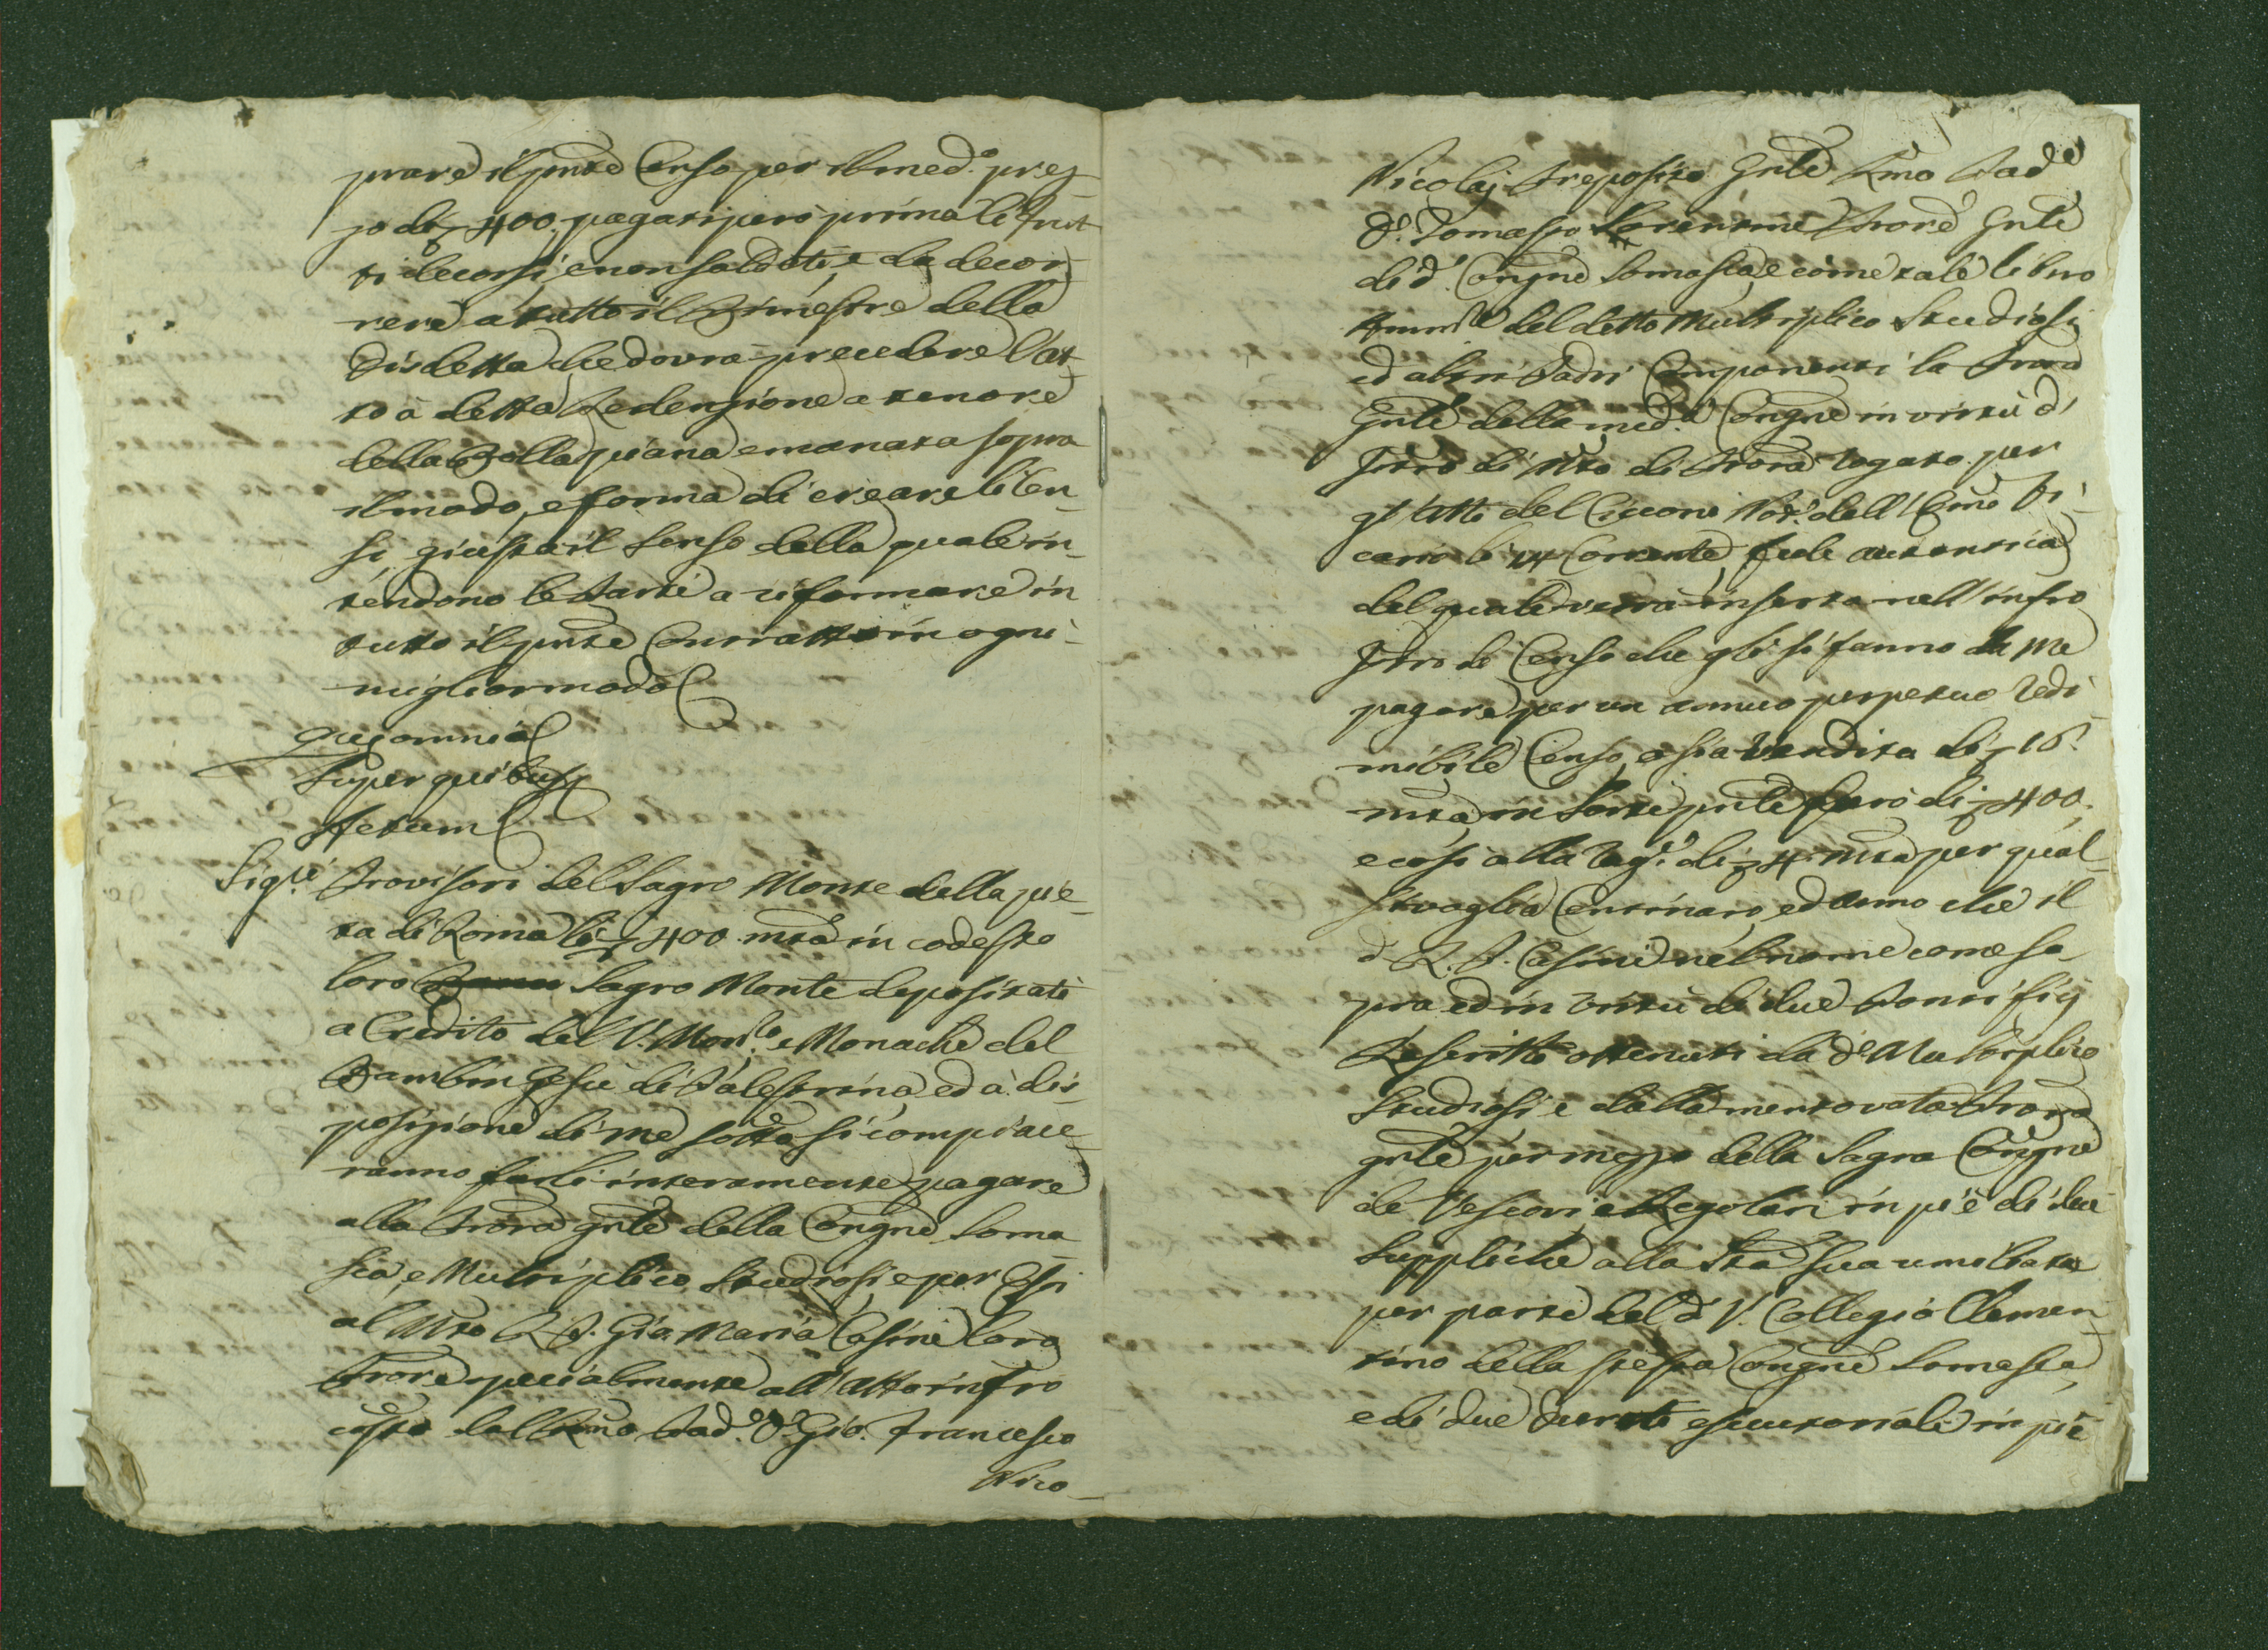 prare il pnte Censo per il med.o prez
zo di 400. pagati però prima li frut
ti decorsi, e non saldati, e da decor
rere a tutto il Bimestre della
Disdetta che dovrà precedere l'at
to à detta Redenzione a tenore
della Bolla piana emanata sopra
il modo, e forma di creare li Cen
si, giusta il senso della quale in
tendono le Parti a riformare in
tutto il pnte Contratto in ogni
miglior modo
Quae omnia
Super quibus
Actum
Sig.ri Provisori del Sagro Monte della pie
tà di Roma li 400 mta in codesto
loro Sagro Monte depositati
a Credito del V. Mon.ro e Monache del
Bambin Gesù di Palestrina, ed à dis
posizione di me sotto si compiace
ranno farli interamente pagare
alla Prora gnle della Congne Soma
sca, e Multiplico Studiosi, e per Essi
al Mto R. P. Gio. Maria Casini loro
Prore specialmente all' Atto infro
costo dal Rmo Pad.e D. Gio. Francesco
Nico
Nicolaj Preposito Gnle Rmo Pad.e
D. Tomasso Prore Gnle
di d. Congne Somasca, e come tale libero
Ammre del detto Multiplico Studiosi
ed altri Padri Componenti la Prora
Gnle della med.a Congne in virtù d'
Istro di Mto di Prora rogato per
gl' Atti del Ciccone Not.o dell' Emo Vi
cario li 14 Corrente, fede autentica
del quale verrà inserta nell' infro
Istro di Censo che gli si fanno da me
pagare per un annuo perpetuo redi
mibile Censo, o sia Vendita di 16:
mta, in sorte pnle però di 400.
e così alla rag.e di 4 mta per qual
sivoglia Centinaro, ed anno che il
d. R. P. Casini nel nome come so
pra ed in virtù di due Pontifij
Rescritti ottenuti da d.o Multiplico
Studiosi, e dalla mentovata Prora
gnle per mezzo della Sagra Congne
de Vescovi e Regolari in piè di due
Suppliche alla Stà Sua umiliate
per parte del d. V. Collegio Clemen
tino della stessa Congne Somasca,
e di due Decreti esecutoriali in piè